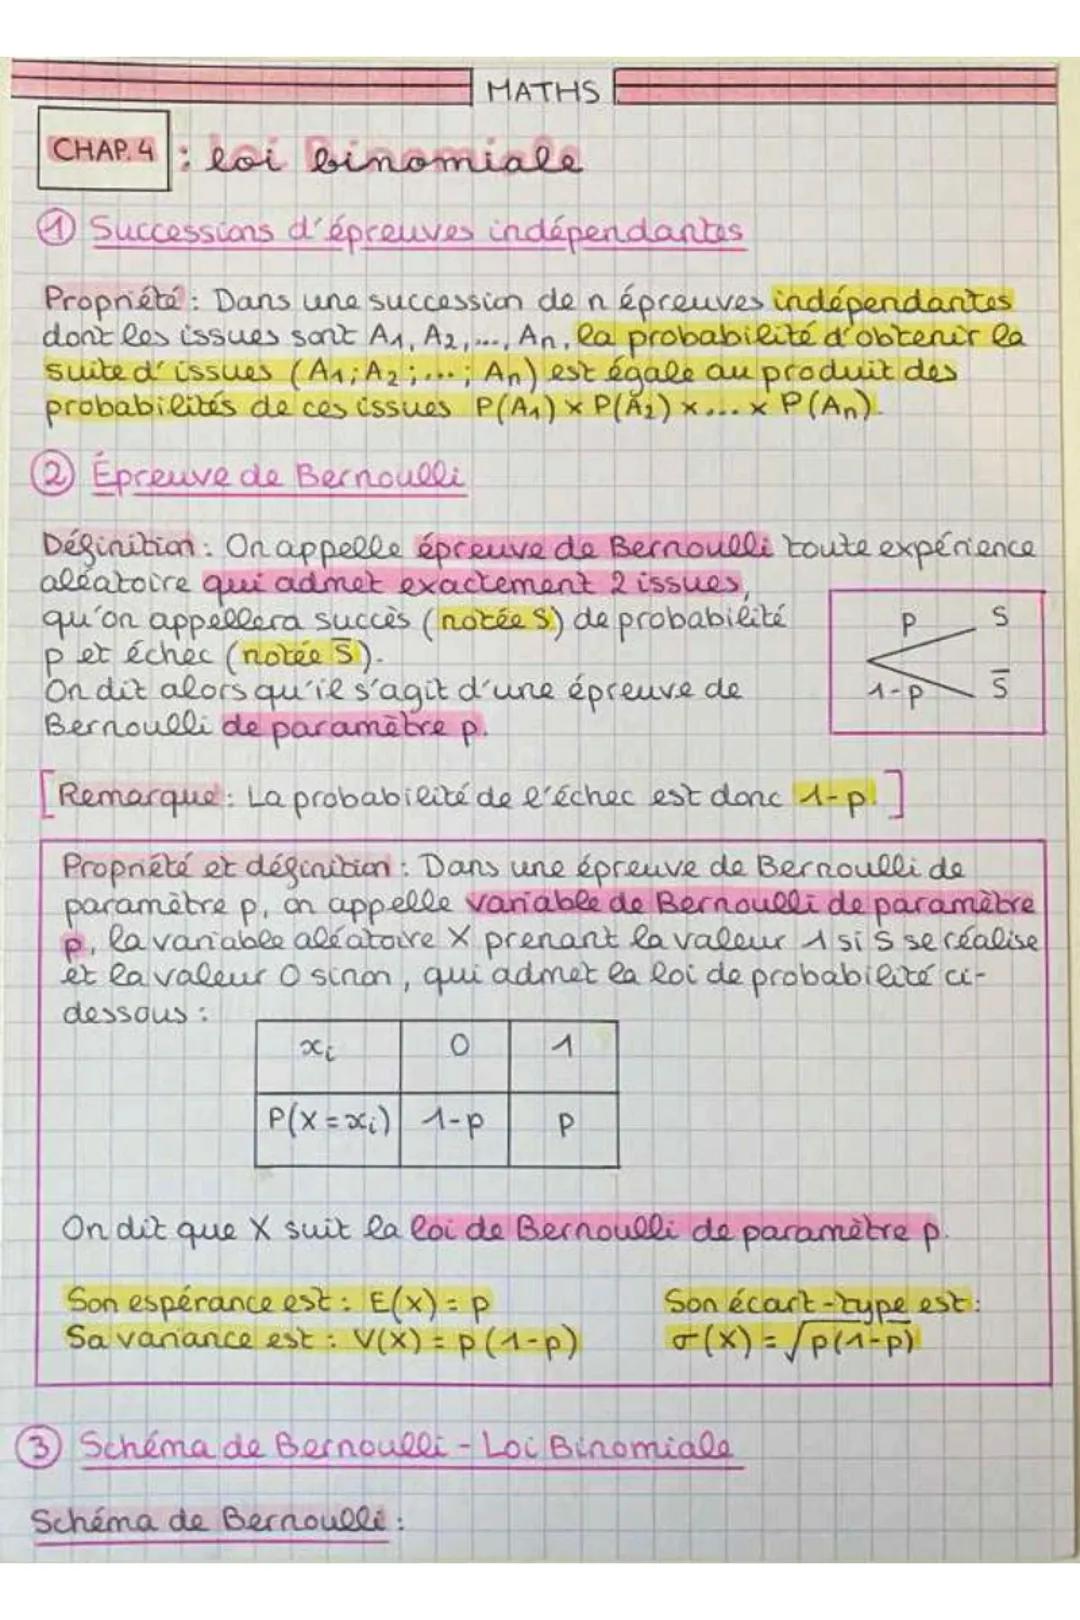 MATHS
CHAP.4 : loi binomiale
① Successions d'épreuves indépendantes
Propriété : Dans une succession de n épreuves indépendantes
dont les issues sont A₁, A₂,..., Aₙ, la probabilité d'obtenir la
suite d'issues (A₁; A₂; ...; Aₙ) est égale au produit des
probabilités de ces issues P(A₁) × P(A₂) × ... × P(Aₙ).
② Épreuve de Bernoulli
Définition : On appelle épreuve de Bernoulli toute expérience
aléatoire qui admet exactement 2 issues,
qu'on appellera succès (notée S) de probabilité
p et échec (notée S̅).
On dit alors qu'il s'agit d'une épreuve de
Bernoulli de paramètre p.
p S
1-p S̅
[Remarque : La probabilité de l'échec est donc 1-p.]
Propriété et définition : Dans une épreuve de Bernoulli de
paramètre p, on appelle variable de Bernoulli de paramètre
p, la variable aléatoire X prenant la valeur 1 si S se réalise
et la valeur 0 sinon, qui admet la loi de probabilité ci-
dessous :
xᵢ 0 1
P(X = xᵢ) 1-p p
On dit que X suit la loi de Bernoulli de paramètre p.
Son espérance est : E(X) = p
Sa variance est : V(X) = p(1-p)
Son écart-type est :
σ(X) = √p(1-p)
③ Schéma de Bernoulli - Loi Binomiale
Schéma de Bernoulli :